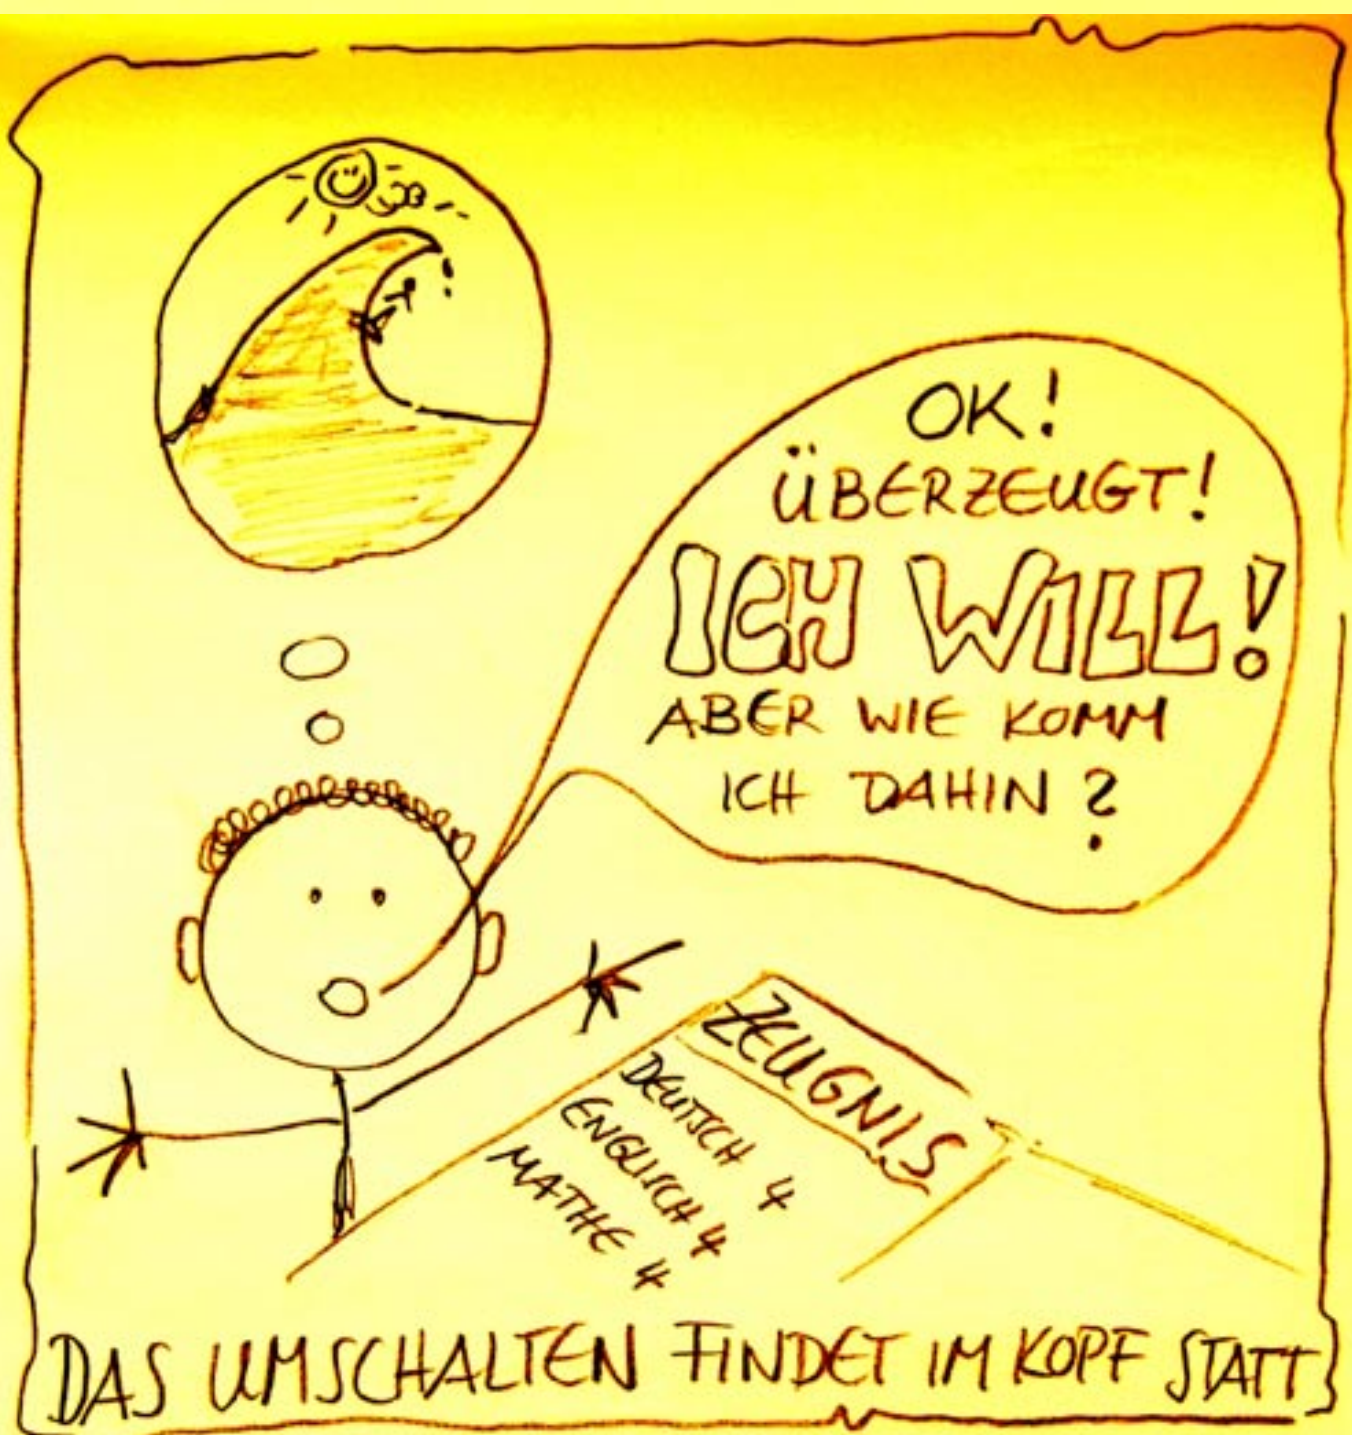 OK!
ÜBERZEUGT!
ICH WILL!
ABER WIE KOMM
ICH DAHIN?
ZEUGNIS
DEUTSCH 4
ENGLISCH 4
MATHE 4
DAS UMSCHALTEN FINDET IM KOPF STATT